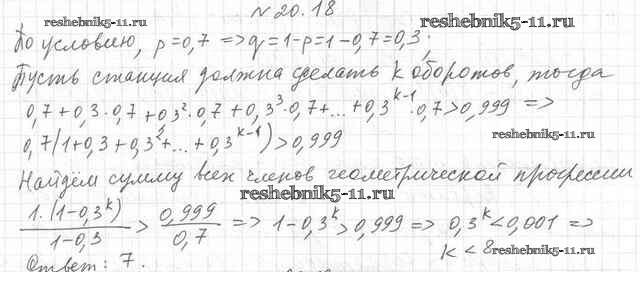 № 20.18
reshebnik5-11.ru
По условию, p=0,7 => q=1-p=1-0,7=0,3;
Пусть станция должна сделать k оборотов, тогда
0,7+0,3·0,7+0,3²·0,7+0,3³·0,7+...+0,3^(k-1)·0,7>0,999 =>
reshebnik5-11.ru
0,7(1+0,3+0,3²+...+0,3^(k-1))>0,999
reshebnik5-11.ru
Найдём сумму всех членов геометрической прогрессии
reshebnik5-11.ru
1·(1-0,3^k)/(1-0,3) > 0,999/0,7 => 1-0,3^k>0,999 => 0,3^k<0,001 =>
k<8
reshebnik5-11.ru
reshebnik5-11.ru
Ответ: 7.